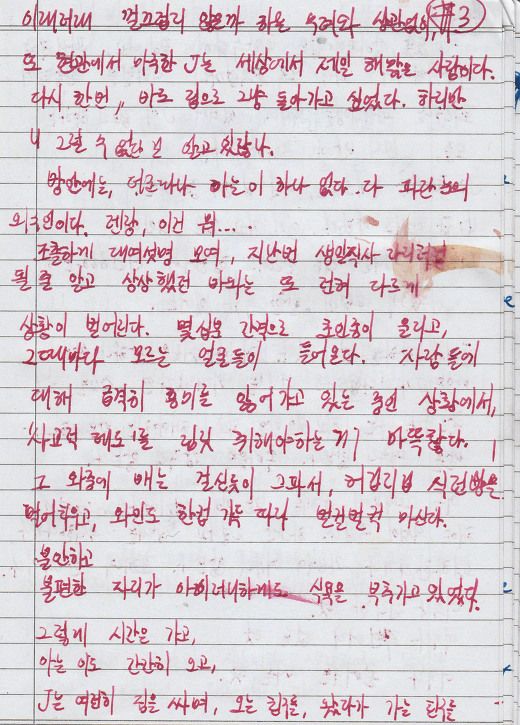 이래저래 껄끄럽지 않을까 하는 우려와 상관없이, #3
또 현관에서 마주한 J는 세상에서 제일 해맑은 사람이다.
다시 한번,, 바로 집으로 그냥 돌아가고 싶었다. 하지만
그럴 수 없다는 걸 알고 있잖나.
방안에는, 더군다나 아는 이 하나 없다. 다 파란눈의
외국인이다. 젠장, 이건 뭐...
조촐하게 대여섯명 모여, 지난번 생일식사 자리처럼
될 줄 알고 상상했던 바와는 또 전혀 다르게
상황이 벌어진다. 몇십분 간격으로 초인종이 울리고,
그때마다 모르는 얼굴들이 들어온다. 사람들에
대해 급격히 흥미를 잃어가고 있는 중인 상황에서,
'사교적 태도'를 취해야하는 게 아뜩했다.
그 와중에 배는 걸신듯이 고파서, 허겁지겁 식전빵을
먹어치우고, 와인도 한컵 가득 따라 벌컥벌컥 마신다.
불안하고
불편한 자리가 아이러니하게도 식욕을 부추기고 있었다.
그렇게 시간은 가고,
아는 이도 간간히 오고,
J는 여전히 집을 싸며, 오는 친구를, 왔다가 가는 친구를